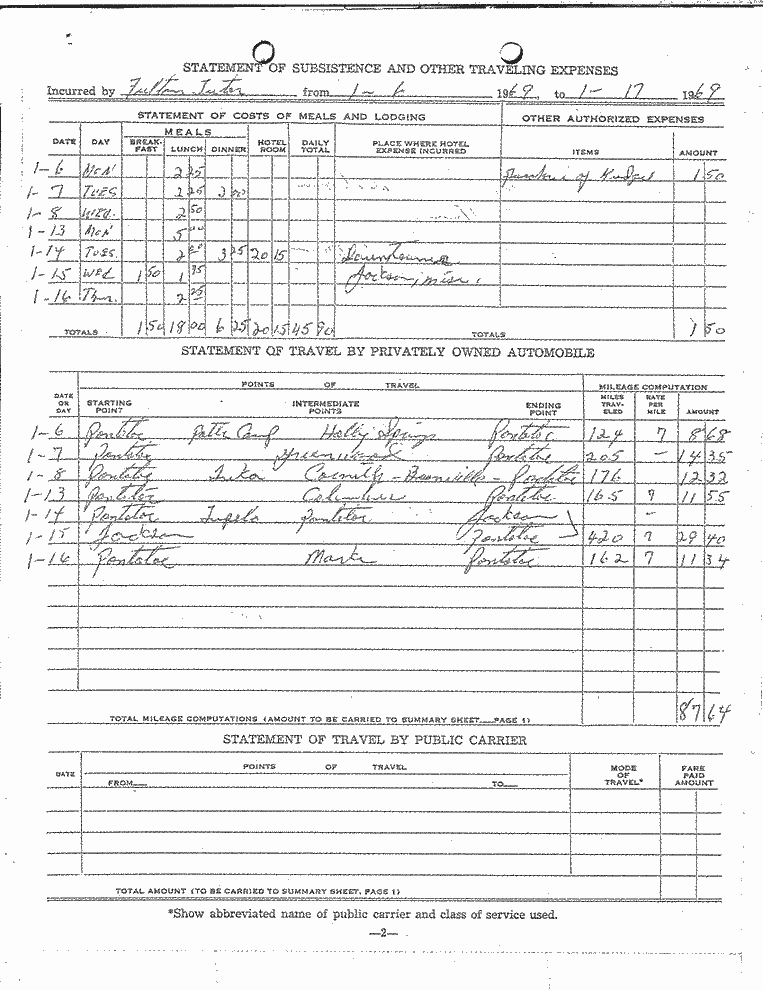 STATEMENT OF SUBSISTENCE AND OTHER TRAVELING EXPENSES
Incurred by Fulton Tutor from 1-6 1969 to 1-17 1969
STATEMENT OF COSTS OF MEALS AND LODGING OTHER AUTHORIZED EXPENSES
DATE DAY MEALS BREAK-FAST LUNCH DINNER HOTEL ROOM DAILY TOTAL PLACE WHERE HOTEL EXPENSE INCURRED ITEMS AMOUNT
1-6 MON 2 25 of Budget 1 50
1-7 TUES 2 25 3 00
1-8 WED. 2 50
1-13 MON 5 00
1-14 TUES. 2 00 3 25 20 15 Downtowner
1-15 WED 1 50 1 75 Jackson, Miss.
1-16 Thur. 2 25
TOTALS 1 50 18 00 6 25 20 15 45 90 TOTALS 1 50
STATEMENT OF TRAVEL BY PRIVATELY OWNED AUTOMOBILE
POINTS OF TRAVEL MILEAGE COMPUTATION
DATE OR DAY STARTING POINT INTERMEDIATE POINTS ENDING POINT MILES TRAV-ELED RATE PER MILE AMOUNT
1-6 Pontotoc Potts Camp Holly Springs Pontotoc 124 7 8 68
1-7 Pontotoc Greenwood Pontotoc 205 - 14 35
1-8 Pontotoc Iuka Corinth - Booneville - Pontotoc 176 12 32
1-13 Pontotoc Columbus Pontotoc 165 7 11 55
1-14 Pontotoc Tupelo Pontotoc Jackson -
1-15 Jackson Pontotoc 420 7 29 40
1-16 Pontotoc Marks Pontotoc 162 7 11 34
TOTAL MILEAGE COMPUTATIONS (AMOUNT TO BE CARRIED TO SUMMARY SHEET PAGE 1) 87 64
STATEMENT OF TRAVEL BY PUBLIC CARRIER
DATE POINTS OF TRAVEL MODE OF TRAVEL* FARE PAID AMOUNT
FROM— TO—
TOTAL AMOUNT (TO BE CARRIED TO SUMMARY SHEET, PAGE 1)
*Show abbreviated name of public carrier and class of service used.
—2—